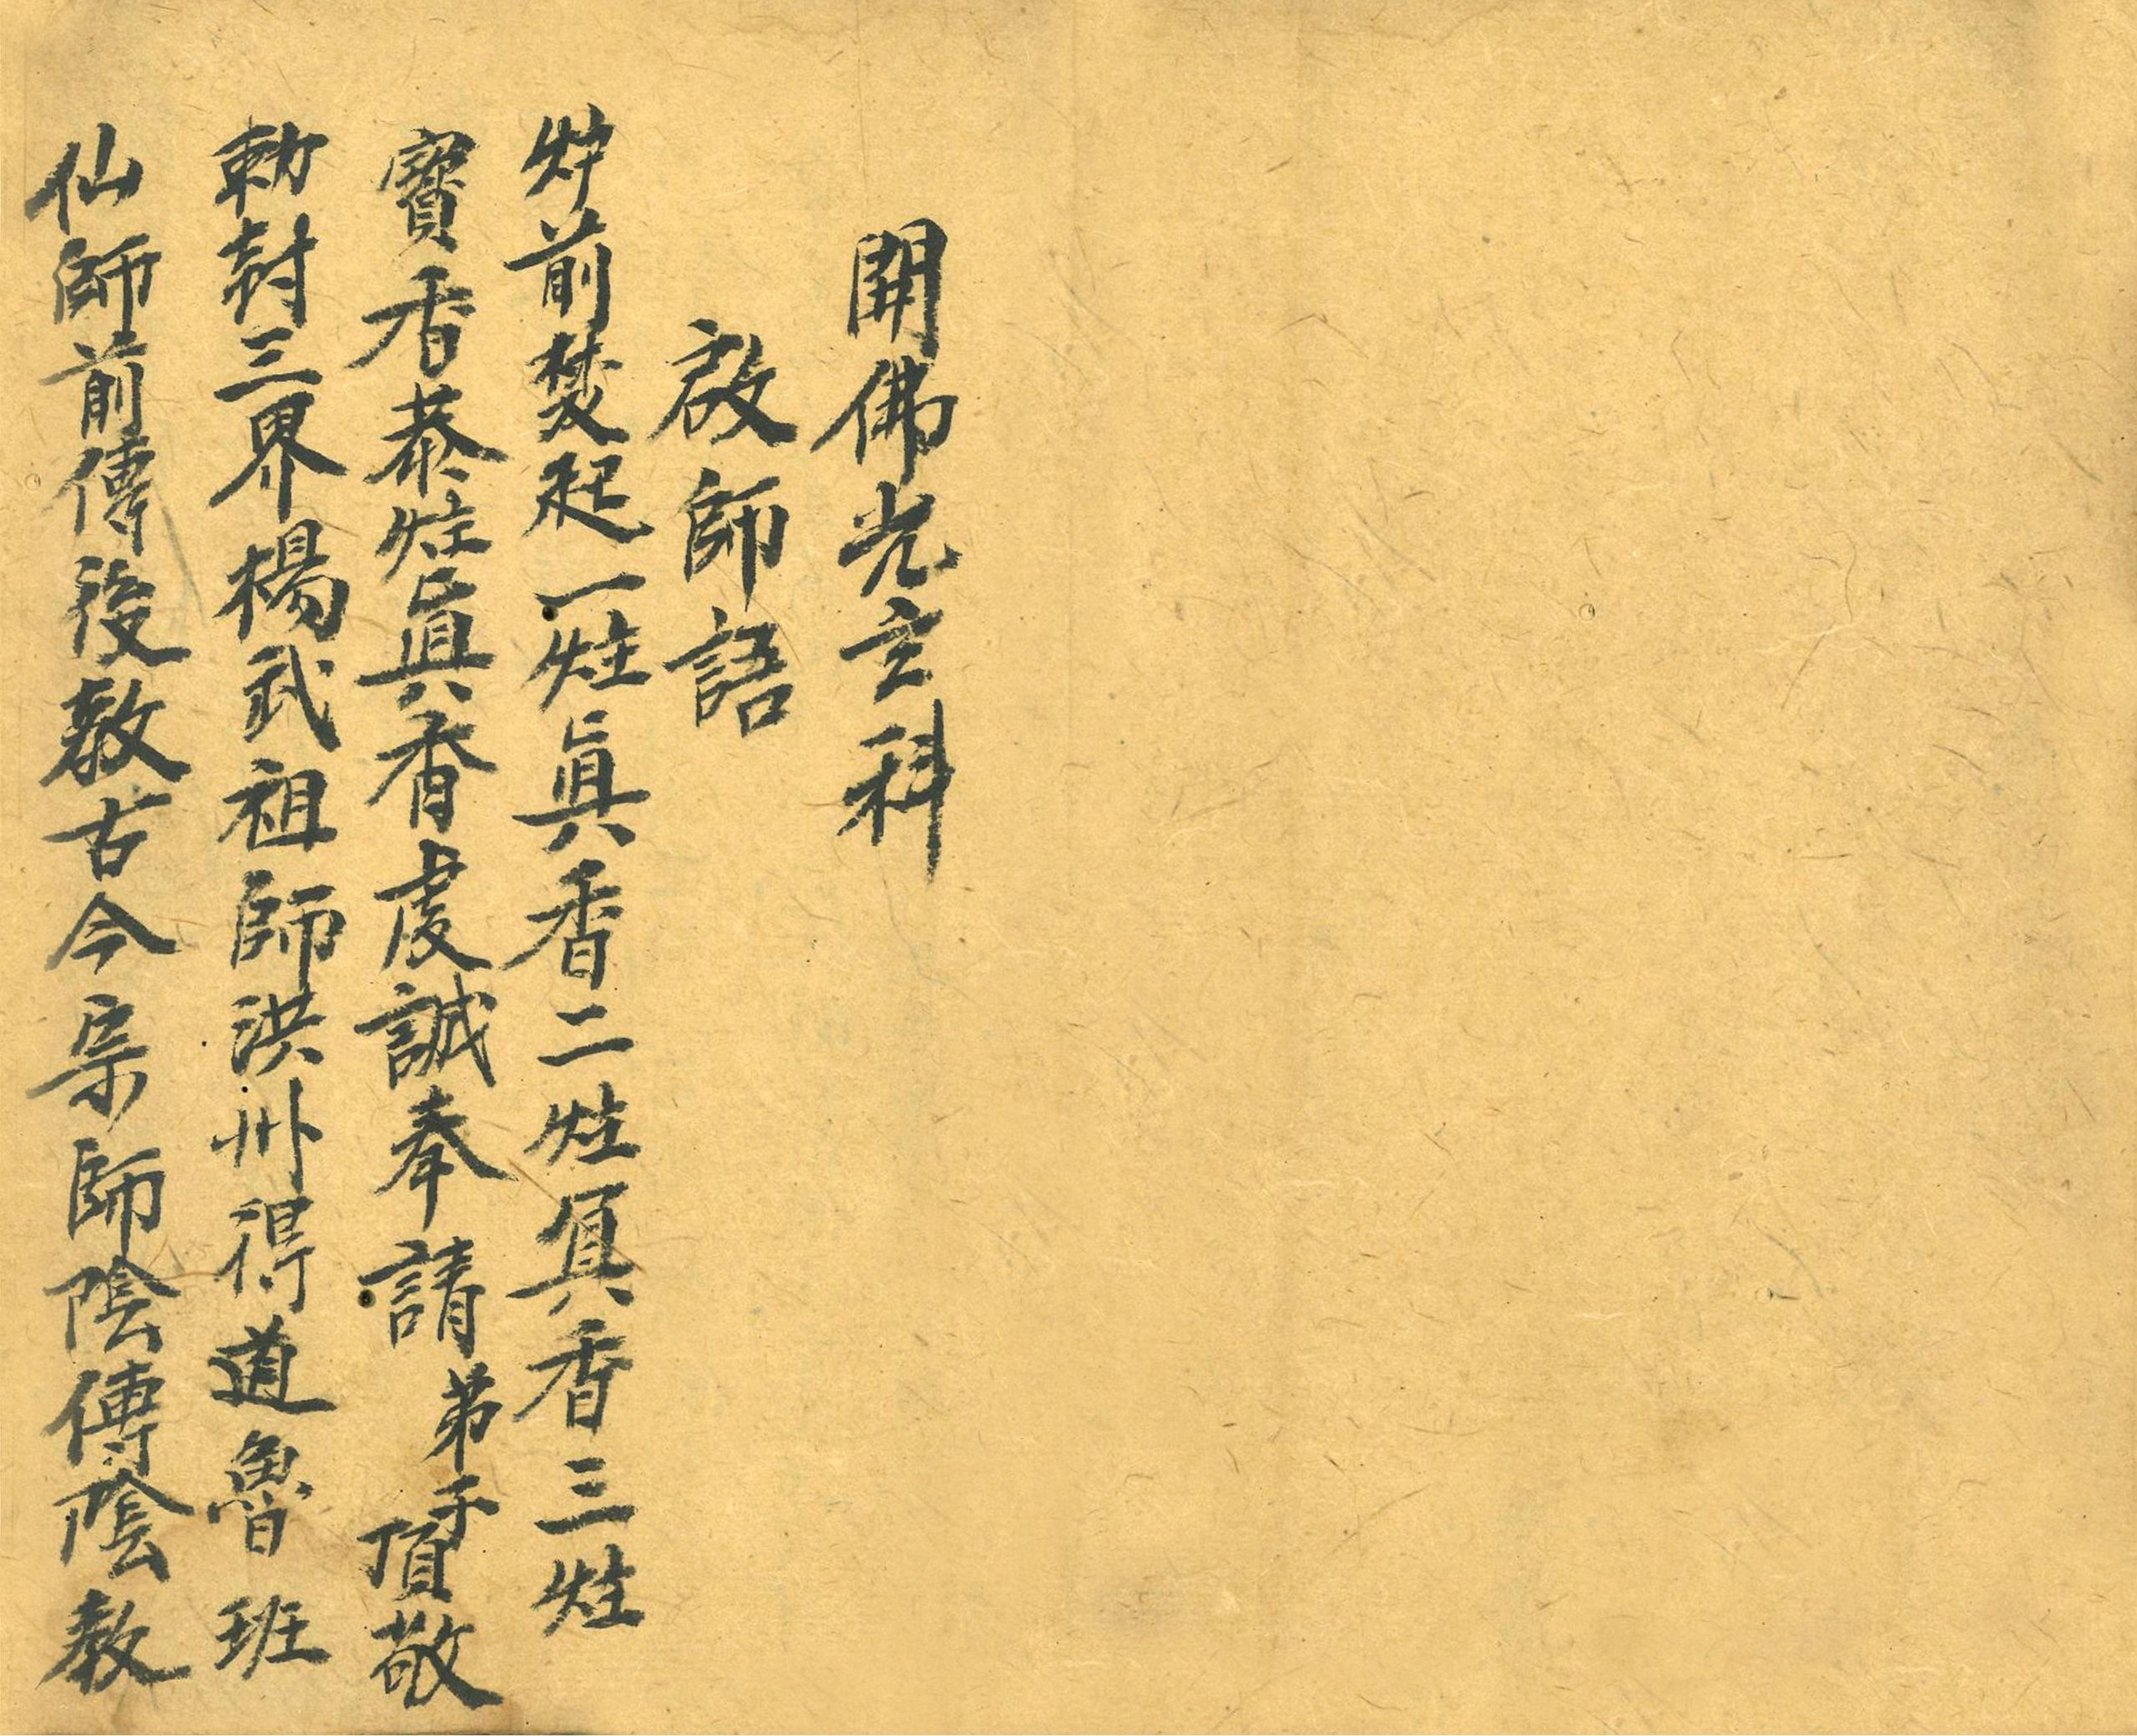 開佛光玄科
啟師語
炉前焚起一炷真香二炷真香三炷
寶香恭炷真香虔誠奉請弟子頂敬
勅封三界楊武祖師洪州得道魯班
仙師前傳後教古今宗師陰傳陰教